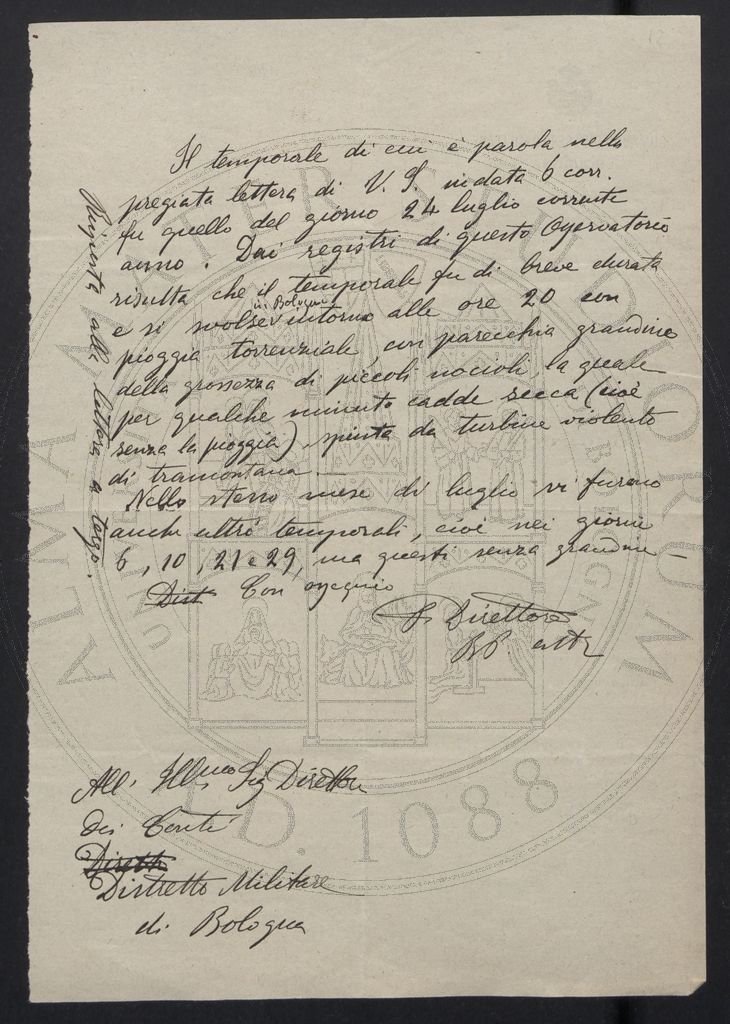 Il temporale di cui è parola nella
pregiata lettera di V. S. in data 6 corr.
fu quello del giorno 24 luglio corrente
anno. Dai registri di questo Osservatorio
risulta che il temporale fu di breve durata
in Bologna
e si svolse intorno alle ore 20 con
pioggia torrenziale, con parecchia grandine
della grossezza di piccoli nocioli, la quale
per qualche minuto cadde secca (cioè
senza la pioggia), spinta da turbine violento
di tramontana. —
Nello stesso mese di luglio vi furono
anche altri temporali, cioè nei giorni
6, 10, 21 e 29, ma questi senza grandine —
Dist Con ossequio
Il Direttore
All' Illmo Sig Direttore
dei Conti
Dirett
Distretto Militare
di Bologna
Risposta alla lettera a tergo.
ALMA MATER STUDIORUM
A.D. 1088